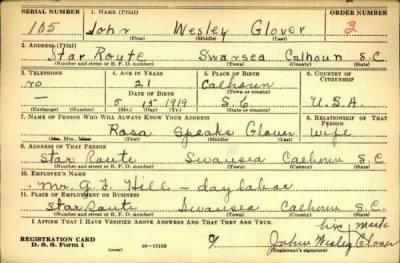 SERIAL NUMBER 1. NAME (Print) ORDER NUMBER
105 John Wesley Glover 2
(First) (Middle) (Last)
2. ADDRESS (Print)
Star Route Swansea Calhoun S.C.
(Number and street or R. F. D. number) (Town) (County) (State)
3. TELEPHONE 4. AGE IN YEARS 5. PLACE OF BIRTH 6. COUNTRY OF CITIZENSHIP
no 21 Calhoun
DATE OF BIRTH (Town or county)
— 5 15 1919 S.C. U.S.A.
(Exchange) (Number) (Mo.) (Day) (Yr.) (State or country)
7. NAME OF PERSON WHO WILL ALWAYS KNOW YOUR ADDRESS 8. RELATIONSHIP OF THAT PERSON
Rosa Speaks Glover Wife
(Mr., Mrs., Miss) (First) (Middle) (Last)
9. ADDRESS OF THAT PERSON
Star Route Swansea Calhoun S.C.
(Number and street or R. F. D. number) (Town) (County) (State)
10. EMPLOYER'S NAME
Mr. G. F. Hill — day labor
11. PLACE OF EMPLOYMENT OR BUSINESS
Star Route Swansea Calhoun S.C.
(Number and street or R. F. D. number) (Town) (County) (State)
I AFFIRM THAT I HAVE VERIFIED ABOVE ANSWERS AND THAT THEY ARE TRUE.
his mark
REGISTRATION CARD
D. S. S. Form 1 (over) 16—17105 John Wesley Glover
(Registrant's signature)